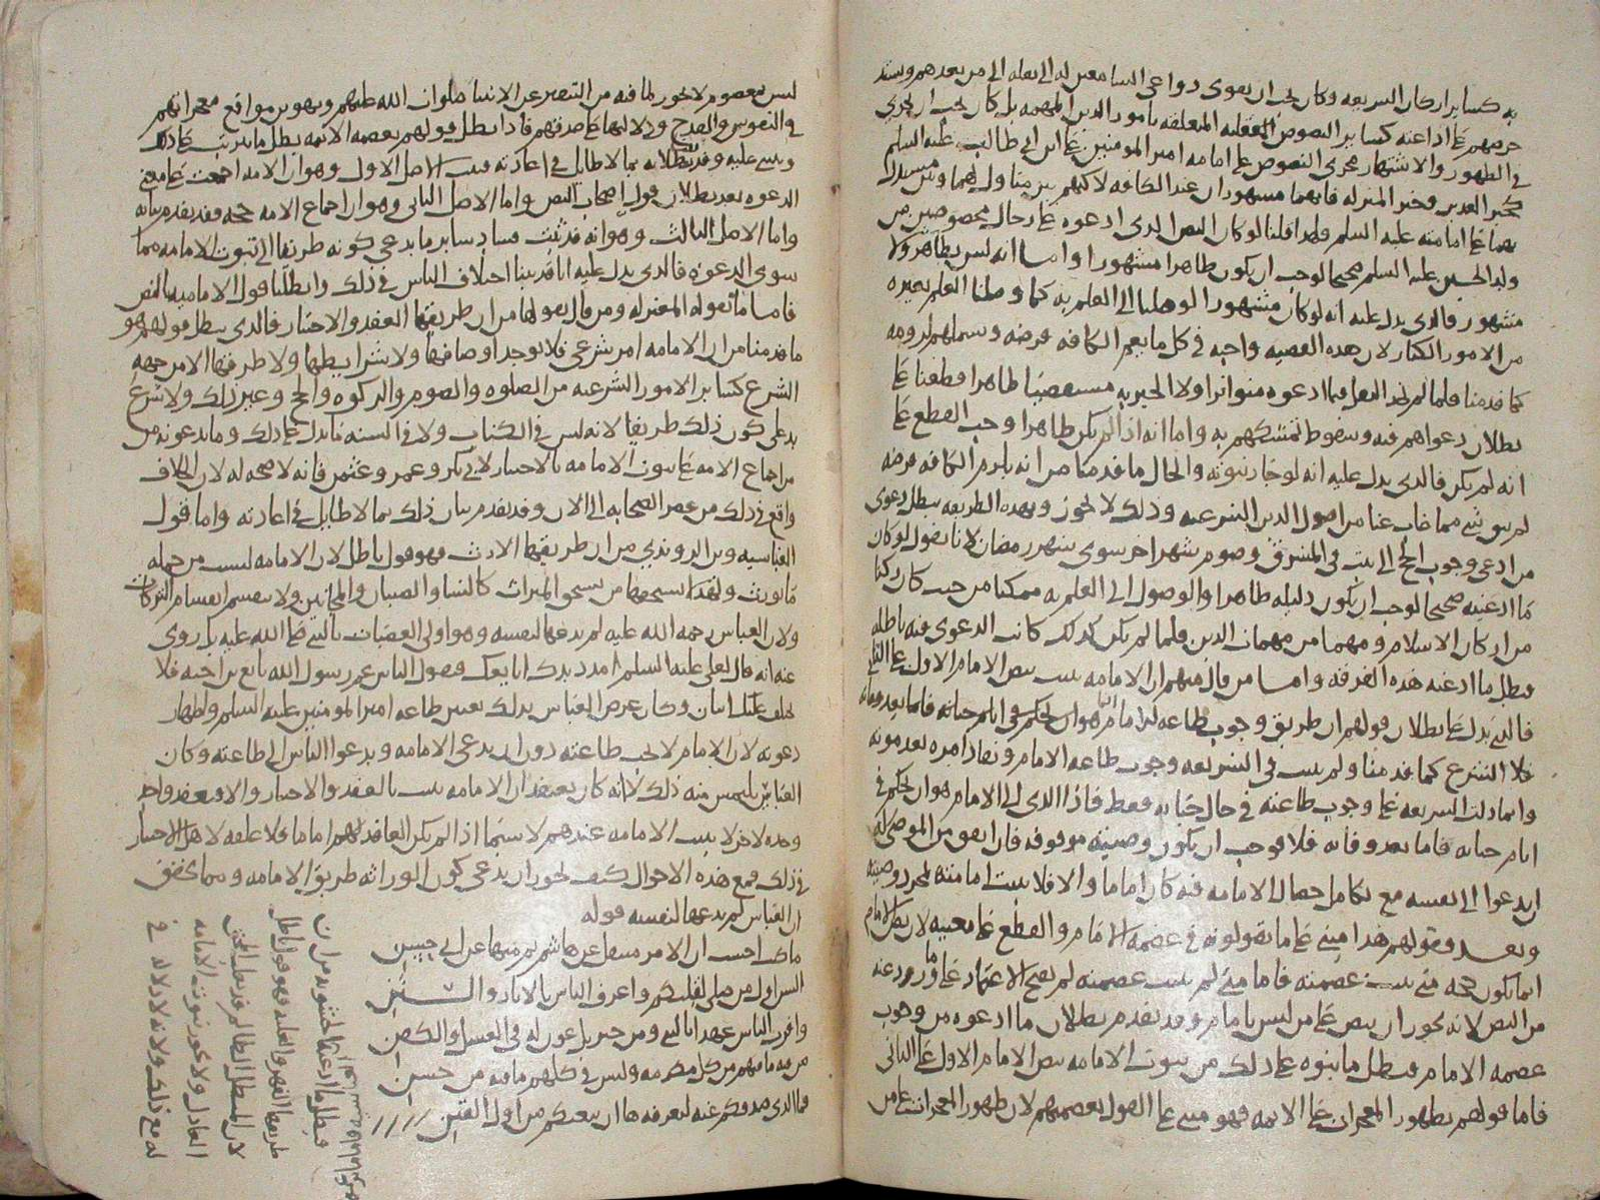 به كسائر اركان الشريعه وكان يجب ان يقوى دواعى السامعين له الى نقله الى من بعدهم ويشتد
حرصهم على اذاعته كسائر النصوص المتعلقه بامور الدين المهمه بل كان يجب ان يجرى
فى الظهور والاشتهار مجرى النصوص على امامه امير المومنين على بن ابى طالب عليه السلم
كخبر الغدير وخبر المنزله فانهما مشهوران عند الكافه لاكنهم بين متاول لهما وبين مستدل
بهما على امامته عليه السلم فلهذا قلنا لو كان النص الذى ادعوه على رجال مخصوصين من
ولد الحسين عليه السلم صحيحا لوجب ان يكون ظاهرا مشهورا واما انه ليس بظاهر ولا
مشهور فالذى يدل عليه انه لو كان مشهورا لوصلنا الى العلم به كما وصلنا العلم بغيره
من الامور الكبار لان هذه القضيه واجبه فى كل ما يعم الكافه فرضه وشملهم لزومه
كما قدمنا فلما لم نجد النقل فيما ادعوه متواترا ولا الخبر به مستفيضا ظاهرا قطعنا على
بطلان دعواهم فيه وسقوط تمسكهم به واما انه اذا لم يكن ظاهرا وجب القطع على
انه لم يكن فالذى يدل عليه انه لو جاز ثبوته والحال ما قدمنا من انه يلزم الكافه فرضه
لم نثق بشى مما غاب عنا من اصول الدين الشرعيه وذلك لا يجوز وبهذه الطريقه يبطل دعوى
من ادعى وجوب الحج الى بيت فى المشرق وصوم شهر اخر سوى شهر رمضان لانا نقول لو كان
ما ادعيته صحيحا لوجب ان يكون دليله ظاهرا والوصول الى العلم به ممكنا من حيث كان ركنا
من اركان الاسلام ومهما من مهمات الدين فلما لم يكن كذلك كانت الدعوى فيه باطله
فبطل ما ادعته هذه الفرقه واما من قال منهم ان الامامه تثبت بنص الامام الاول على الثانى
فالذى يدل على بطلان قولهم ان طريق وجوب طاعه الامام انما هو ان يحكم فى ايام حياته فاما بعد وفاته
فلا الشرع كما قدمنا ولم يثبت فى الشريعه وجوب طاعه الامام ونفاذ امره بعد موته
وانما دلت الشريعه على وجوب طاعته فى حال حياته فقط فاذا الذى الى الامام هو ان يحكم فى
ايام حياته فاما بعد وفاته فلا فوجب ان يكون وصيته موقوفه فان اتفق من الموصى له
ان يدعوا الى نفسه مع تكامل خصال الامامه فيه كان اماما والا فلا يثبت امامته لمجرد وصيته
وبعد فقولهم هذا مبنى على ما يقولونه فى عصمه الامام والقطع على مغيبه لان نص الامام
انما يكون حجه متى ثبتت عصمته فاما متى لم يثبت عصمته لم يصح الاعتماد على ما ورد عنه
من النص لانه يجوز ان ينص على من ليس بامام وقد تقدم بطلان ما ادعوه من وجوب
عصمه الامام فبطل ما بنوه على ذلك من ثبوت الامامه بنص الامام الاول على الثانى
فاما قولهم بظهور المعجزات على الائمه فهو مبنى على القول بعصمتهم لان ظهور المعجزات على من
ليس بمعصوم لا يجوز لما فيه من التنفير عن الانبيا صلوات الله عليهم وتهوين مواقع معجزاتهم
فى النفوس والقدح فى دلالتها على صدقهم فاذا بطل قولهم بعصمه الائمه بطل ما يترتب على ذلك
ويبنى عليه وقد بطلانه بما لا طائل فى اعادته فثبت الاصل الاول وهو ان الامه اجمعت على معنى
الدعوه بعد بطلان قول اصحاب النص واما الاصل الثانى وهو ان اجماع الامه حجه فقد تقدم بيانه
واما الاصل الثالث وهو انه قد ثبت فساد سائر ما يدعى كونه طريقا الى ثبوت الامامه مما
سوى الدعوه فالذى يدل عليه انا قد بينا اختلاف الناس فى ذلك وابطلنا قول الاماميه بالنص
فاما ما تقوله المعتزله ومن قال بقولها من ان طريقها العقد والاختيار فالذى يبطل قولهم هو
ما قدمنا من ان الامامه امر شرعى فلا يوجد اوصافها ولا شرائطها ولا طرقها الا من جهه
الشرع كسائر الامور الشرعيه من الصلوه والصوم والزكوه والحج وغير ذلك ولا شرع
يدل على كون ذلك طريقا لانه ليس فى الكتاب ولا فى السنه ما يدل على ذلك وما يدعونه من
من اجماع الامه على ثبوت الامامه بالاختيار لابى بكر وعمر وعثمن فانه لا صحه له لان الخلاف
واقع فى ذلك من عصر الصحابه الى الان وقد تقدم بيان ذلك بما لا طائل فى اعادته واما قول
العباسيه وابن الروندى من ان طريقها الارث فهو قول باطل لان الامامه ليست من جمله
ما يورث ولهذا لا يستحقها من يستحق الميراث كالنسا والصبيان والمجانين ولا ينقسم انقسام التركات
ولان العباس رحمه الله عليه لم يدعها لنفسه وهو اولى العصبات بالنبى صلى الله عليه بل روى
عنه انه قال لعلى عليه السلم امدد يدك ابايعك فيقول الناس عم رسول الله بايع بن اخيه فلا
يختلف عليك اثنان وكان غرض العباس بذلك تعيين طاعه امير المومنين عليه السلم واظهار
دعوته لان الامام لا يجب طاعته دون ان يدعى الامامه ويدعوا الناس الى طاعته وكان
العباس يلتمس منه ذلك لا انه كان يعتقد ان الامامه تثبت بالعقد والاختيار والا فبعقد واحد
وحده لاخر لا يثبت الامامه عندهم لا سيما اذا لم يكن العاقد لهم اماما فلا علقه لاهل الاختيار
فى ذلك فمع هذه الاحوال كيف يجوز ان يدعى كون الوراثه طريق الامامه ومما يحقق
ان العباس لم يدعها لنفسه قوله
ما كنت احسب ان الامر منتقل عن هاشم ثم منها عن ابى حسن
اليس اول من صلى لقبلتكم واعرف الناس بالاثار والسنن
واقرب الناس عهدا بالنبى ومن جبريل عون له فى الغسل والكفن
من فيه ما فيهم من كل مكرمه وليس فى كلهم ما فيه من حسن
فما الذى صدكم عنه لنعرفه ها ان بيعتكم من اول الفتن
فبطل ما ادعته الحشويه من ان
طريقها القهر والغلبه فهو قول باطل
لان المتسلط الظالم قد يغلب المحق
العادل ولا يجوز ثبوت الامامه
له مع ذلك ولانه لا دلاله فى